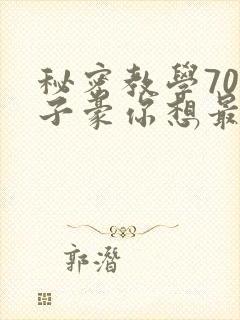 秘密教學70
子豪你想最
郭潛